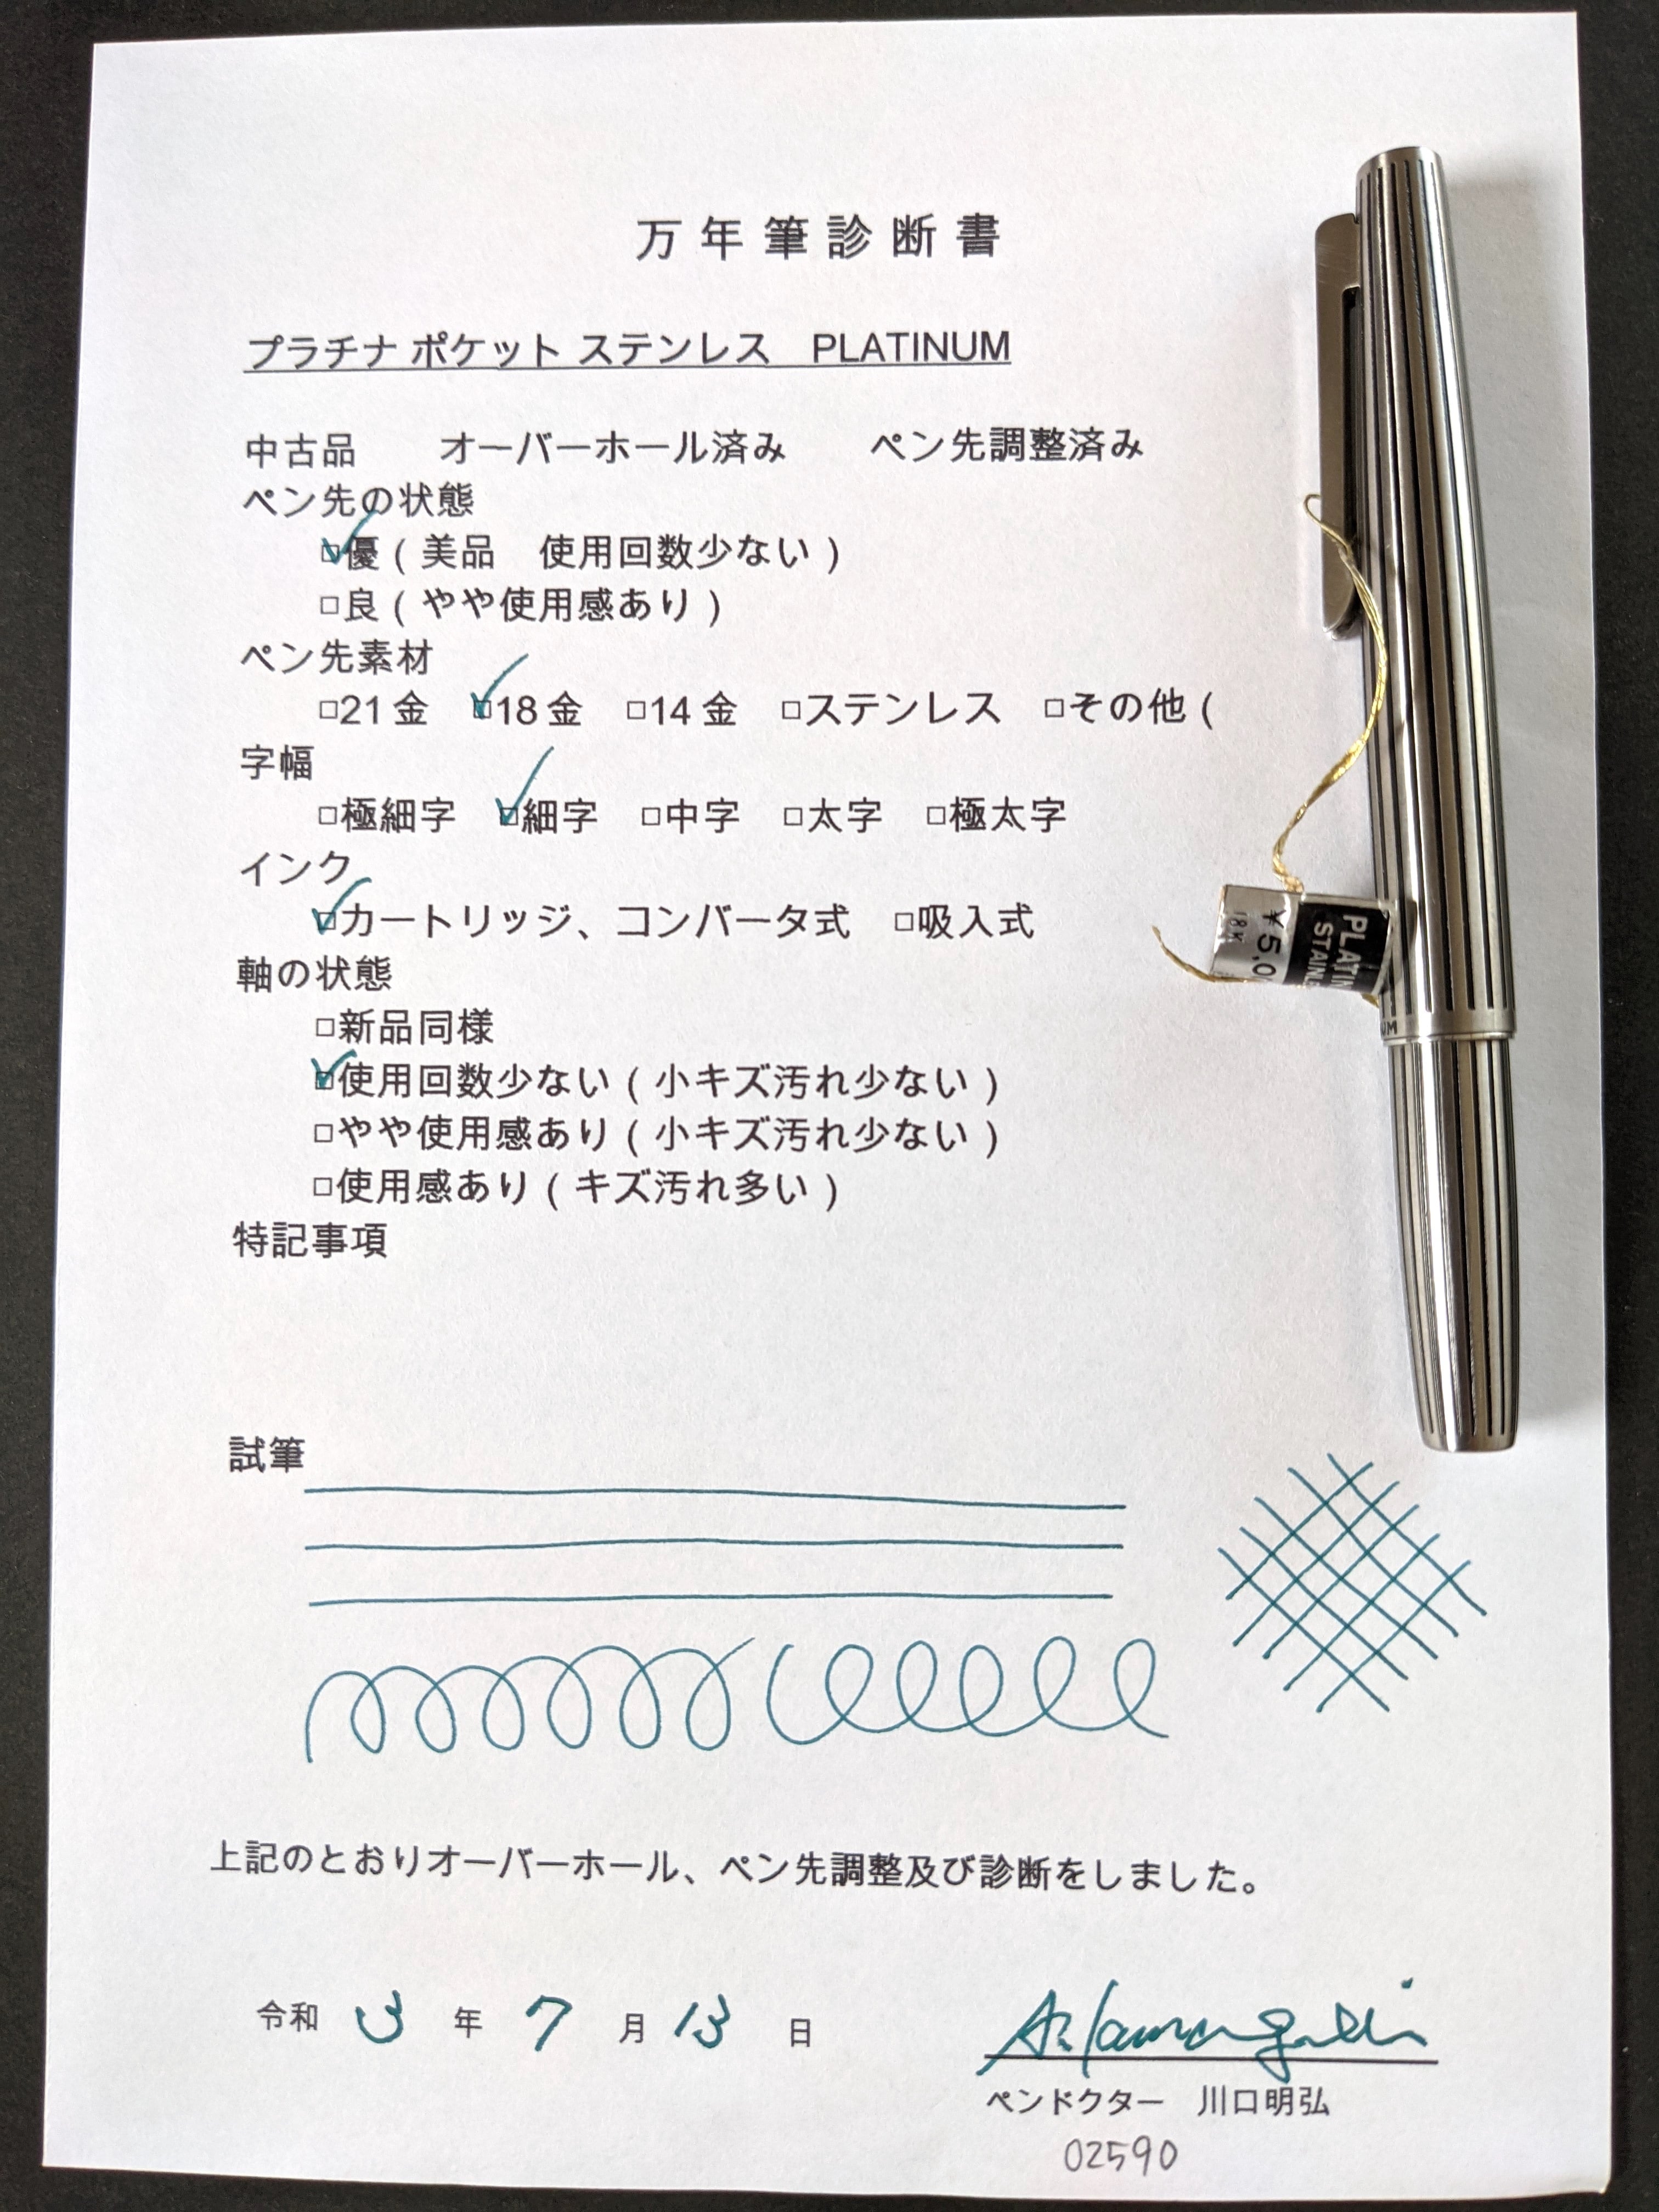 万年筆診断書
プラチナ ポケット ステンレス　PLATINUM
中古品　　オーバーホール済み　　ペン先調整済み
ペン先の状態
☑優（美品　使用回数少ない）
□良（やや使用感あり）
ペン先素材
□21金　☑18金　□14金　□ステンレス　□その他（
字幅
□極細字　☑細字　□中字　□太字　□極太字
インク
☑カートリッジ、コンバータ式　□吸入式
軸の状態
□新品同様
☑使用回数少ない（小キズ汚れ少ない）
□やや使用感あり（小キズ汚れ少ない）
□使用感あり（キズ汚れ多い）
特記事項
試筆
上記のとおりオーバーホール、ペン先調整及び診断をしました。
令和 3 年 7 月 13 日
A. Kawaguchi
ペンドクター　川口明弘
02590
PLATIN
STAINL
¥5,0
18K
UM